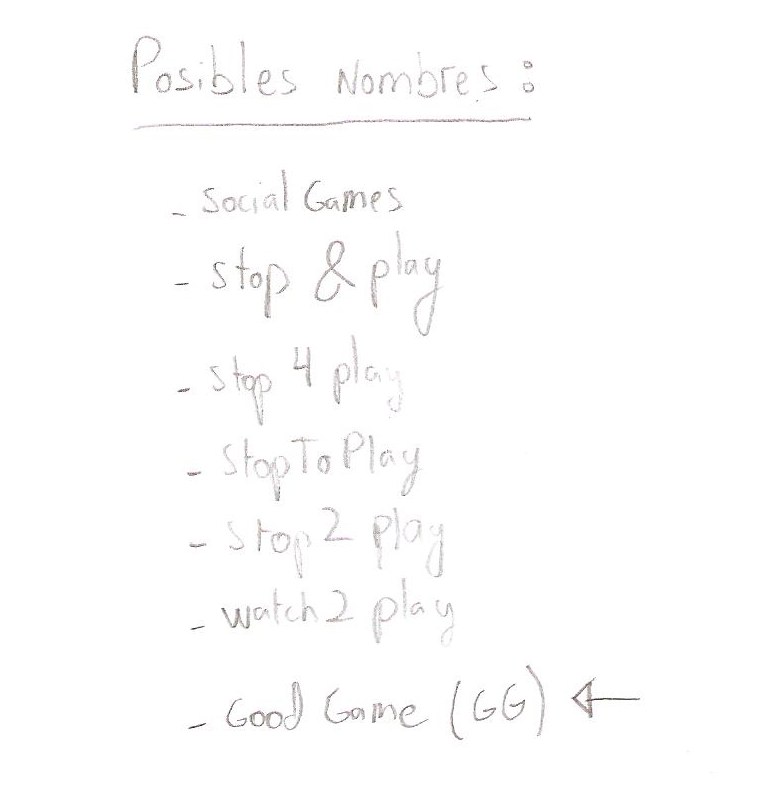 Posibles Nombres:
- Social Games
- Stop & play
- Stop 4 play
- StopToPlay
- Stop 2 play
- watch 2 play
- Good Game (GG) ←